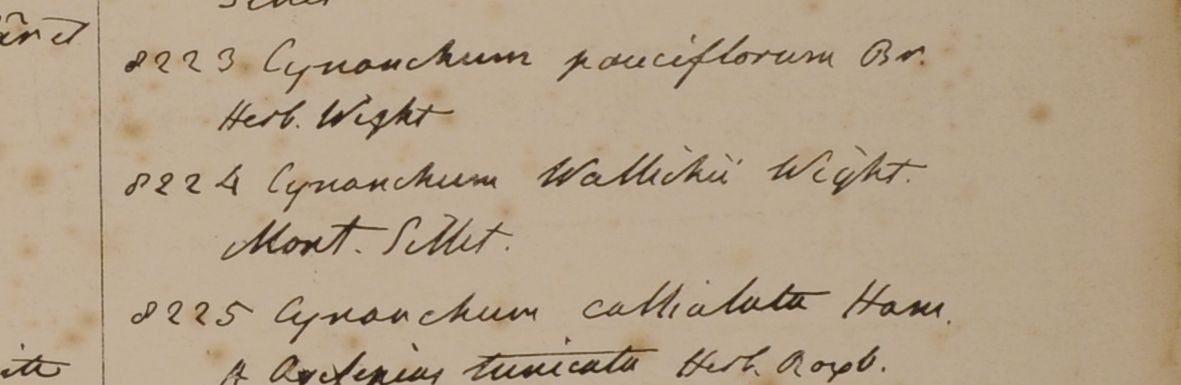 Sillet
8223 Cynanchum pauciflorum Br.
Herb. Wight
8224 Cynanchum Wallichii Wight.
Mont. Sillet.
8225 Cynanchum callialata Ham.
A Asclepias tunicata Herb. Roxb.